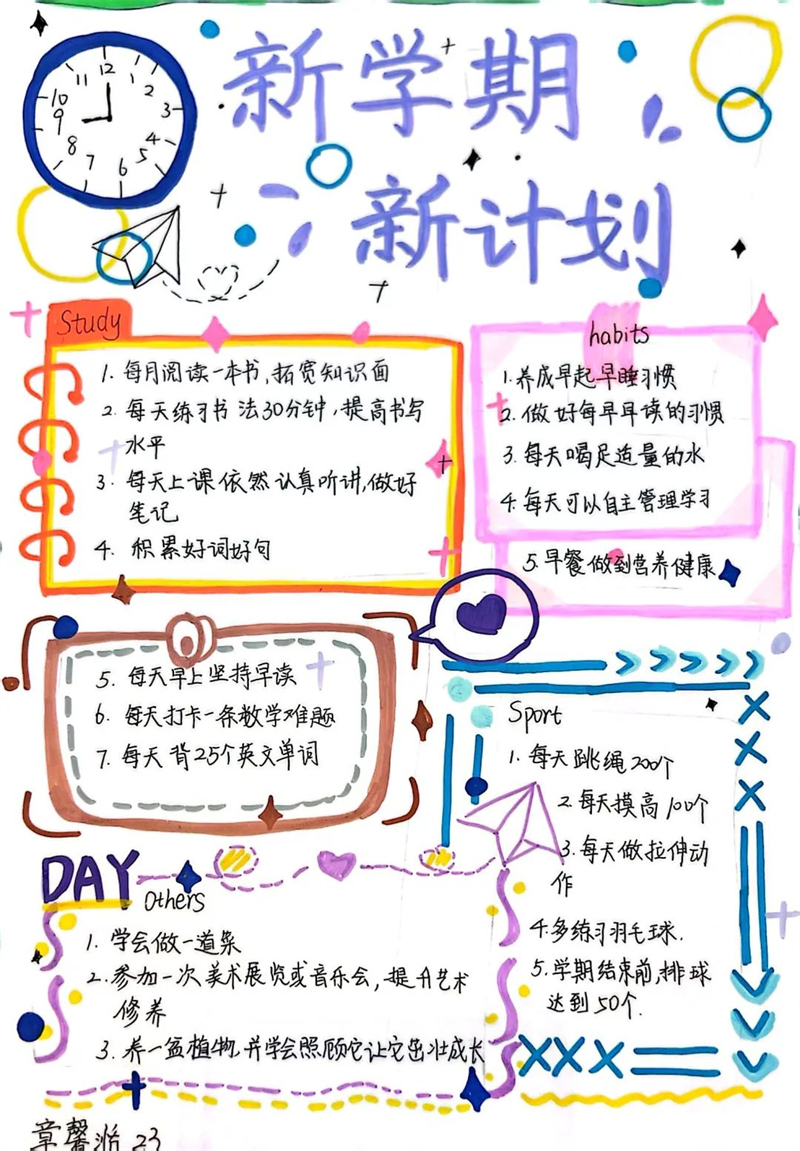 12
1
2
3
4
5
6
7
8
9
10
11
新学期
新计划
Study
1. 每月阅读一本书,拓宽知识面
2. 每天练习书法30分钟,提高书写
水平
3. 每天上课依然认真听讲,做好
笔记
4. 积累好词好句
habits
1.养成早起早睡习惯
2.做好每早早读的习惯
3.每天喝足适量的水
4.每天可以自主管理学习
5.早餐做到营养健康
5. 每天早上坚持早读
6. 每天打卡一条数学难题
7. 每天背25个英文单词
Sport
1. 每天跳绳200个
2.每天摸高100个
3.每天做拉伸动
作
4.多练习羽毛球.
5.学期结束前,排球
达到50个.
DAY
Others
1. 学会做一道菜
2.参加一次美术展览或音乐会,提升艺术
修养
3. 养一盆植物,并学会照顾它让它茁壮成长
章馨 23